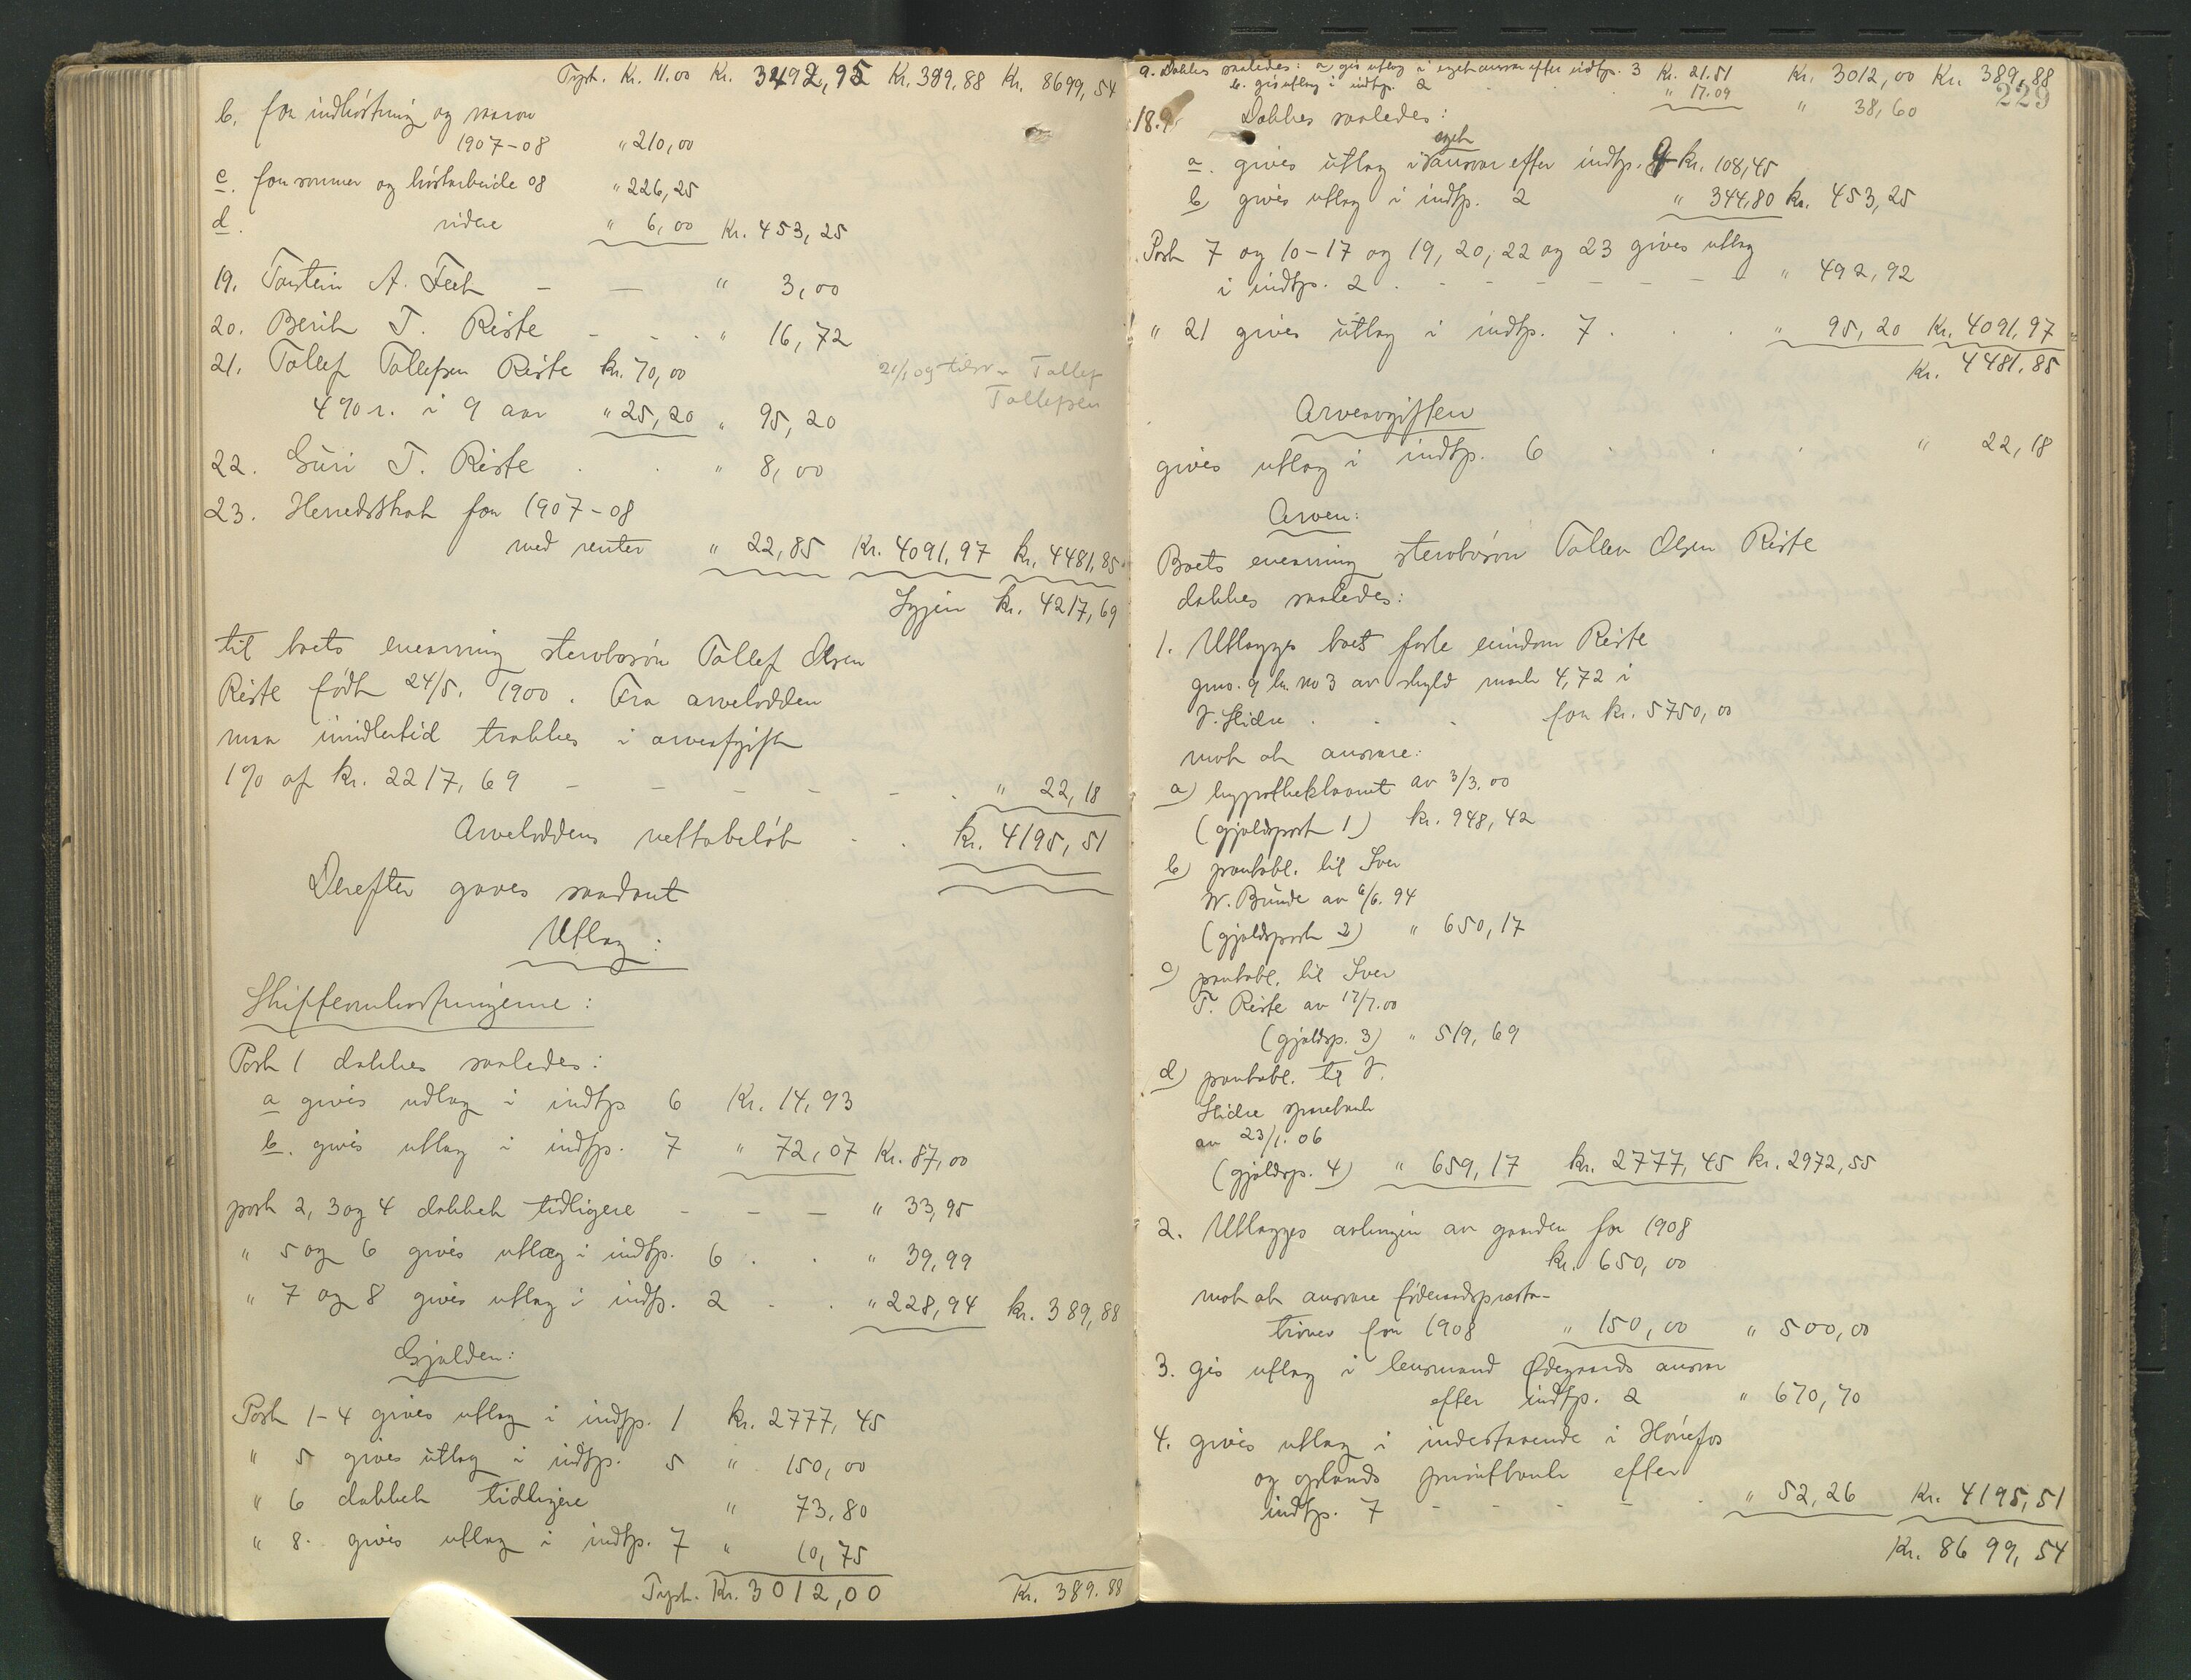 Tpst. Kr. 11.00 Kr. 3492,95 Kr. 389,88 Kr. 8699,54
b. for indhøstning og
1907-08 " 210,00
c. for sommer og høstarbeide 08 " 226,25
d. videre " 6,00 Kr. 453,25
19. Torstein A. " 3,00
20. Berit T. Riste " 16,72
21. Tollef Tollefsen Riste kr. 70,00
4% r. i 9 aar " 25,20 " 95,20
Tollef
Tollefsen
22. Guri T. Riste " 8,00
23. Herredsskat for 1907-08
med renter " 22,85 Kr. 4091,97 kr. 4481,85
Igjen kr. 4217,69
til boets enearving stervbosøn Tollef Olsen
Riste født 24/5. 1900. Fra arvelodden
maa imidlertid trækkes i arveafgift
1% af kr. 2217,69 " 22,18
Arveloddens nettobeløb kr. 4195,51
Derefter gaves saadant
Utlæg:
Skifteomkostningerne:
Post 1 dækkes saaledes:
a gives udlæg i indtp 6 Kr. 14,93
b. gives utlæg i indtp. 7 " 72,07 Kr. 87,00
post 2, 3 og 4 dækket tidligere " 33,95
" 5 og 6 gives utlæg i indtp. 6 " 39,99
" 7 og 8 gives utlæg i indtp. 2 " 228,94 kr. 389,88
Gjælden:
Post 1-4 gives utlæg i indtp. 1 kr. 2777,45
" 5 gives utlæg i indtp. 5 " 150,00
" 6 dækket tidligere " 73,80
" 8. gives utlæg i indtp. 7 " 10,75
Tpst. Kr. 3012,00 Kr. 389.88
9. Dækkes saaledes: a gis utlæg i eget ansvar efter indtp. 3 Kr. 21.51 Kr. 3012,00 Kr. 389,88
b. gis utlæg i indtp. 2 " 17.09 " 38,60
229
18. Dækkes saaledes:
a. gives utlæg i eget ansvar efter indtp. 9 kr. 108,45
b) gives utlæg i indtp. 2 " 344,80 kr. 453,25
Post 7 og 10-17 og 19, 20, 22 og 23 gives utlæg
i indtp. 2 " 492,92
" 21 gives utlæg i indtp. 7 " 95,20 Kr. 4091,97
Kr. 4481,85
Arveavgiften
gives utlæg i indtp. 6 " 22,18
Arven:
Boets enearving stervbosøn Tollev Olsen Riste
dækkes saaledes:
1. Utlægges boets faste eiendom Riste
gno. 9 br. no 3 av skyld mark 4,72 i
V. Slidre for kr. 5750,00
mot at ansvare:
a) hypotheklaanet av 3/3.00
(gjældspost 1) kr. 948,42
b) pantobl. til Iver
W. Bunde av 6/6. 94
(gjældspost 2) " 650,17
c) pantobl. til Iver
T. Riste av 17/7.00
(gjældsp. 3) " 519,69
d) pantobl. til V.
Slidre sparebank
av 23/1. 06
(gjældsp. 4) " 659,17 kr. 2777,45 kr. 2972,55
2. Utlægges avlingen av gaarden for 1908
kr. 650,00
mot at ansvare føderaadspræsta-
tioner for 1908 " 150,00 " 500,00
3. gis utlæg i lensmand Ødegaards ansvar
efter indtp. 2 " 670,70
4. gives utlæg i indestaaende i Hønefos
og oplands privatbank efter
indtp. 7 " 52,26 Kr. 4195,51
Kr. 8699,54